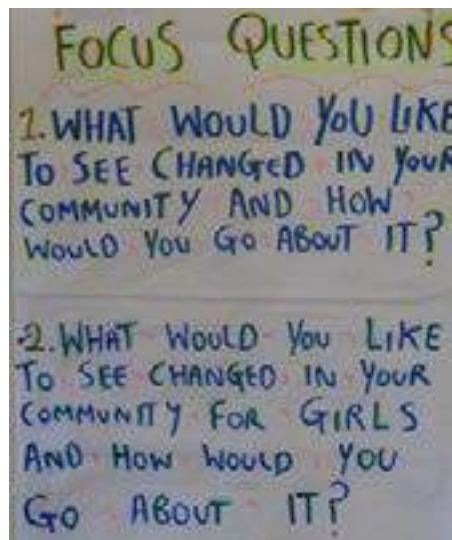 FOCUS QUESTIONS
1. WHAT WOULD YOU LIKE
TO SEE CHANGED IN YOUR
COMMUNITY AND HOW
WOULD YOU GO ABOUT IT?
2. WHAT WOULD YOU LIKE
TO SEE CHANGED IN YOUR
COMMUNITY FOR GIRLS
AND HOW WOULD YOU
GO ABOUT IT?